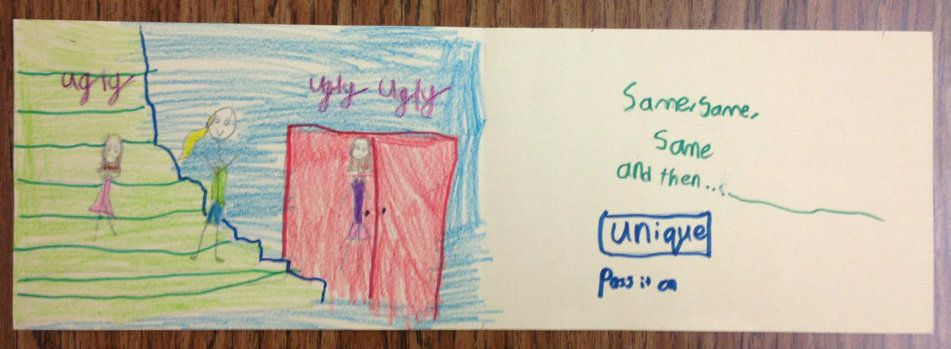 ugly
ugly ugly
Same, Same,
Same
and then...
unique
Pass it on